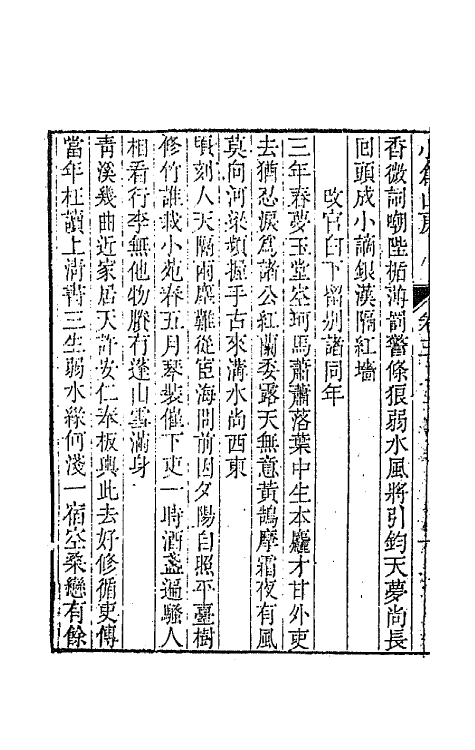 小倉山房
卷三
香微詞嘲陛楯薄罰警條狼弱水風將引鈞天夢尚長
回頭成小謫銀漢隔紅墻
改官白下留別諸同年
三年春夢玉堂空珂馬蕭蕭落葉中生本麤才甘外吏
去猶忍淚爲諸公紅蘭委露天無意黃鵠摩霜夜有風
莫向河梁頻握手古來溝水尚西東
頃刻人天隔兩塵難從宦海問前因夕陽自照平臺樹
修竹誰栽小苑春五月琴裝催下吏一時酒盞遍騷人
相看行李無他物賸有蓬山雪滿身
靑溪幾曲近家居天許安仁奉板輿此去好修循吏傳
當年枉讀上淸書三生弱水緣何淺一宿空桑戀有餘